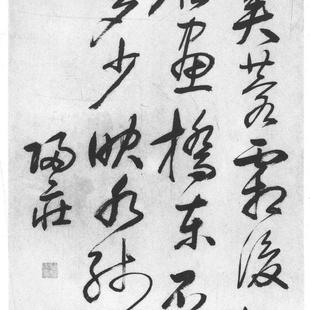 芙蓉霜後
畫橋東不
多少映水
歸莊